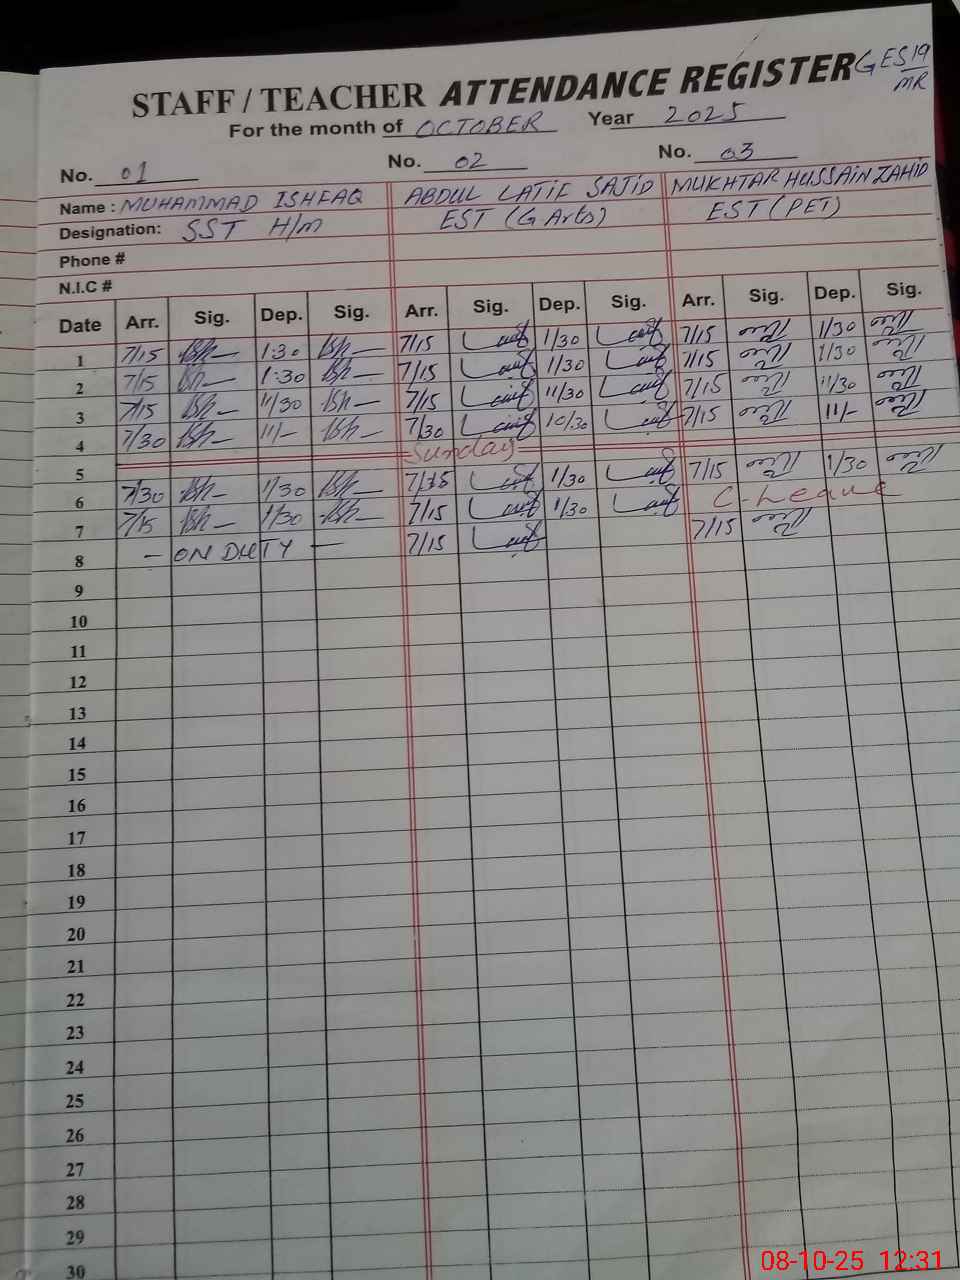 GES19
MR
STAFF / TEACHER ATTENDANCE REGISTER
For the month of OCTOBER Year 2025
No. 01 No. 02 No. 03
Name : MUHAMMAD ISHFAQ ABDUL LATIF SAJID MUKHTAR HUSSAIN ZAHID
Designation: SST H/m EST (G Arts) EST (PET)
Phone #
N.I.C #
Date Arr. Sig. Dep. Sig. Arr. Sig. Dep. Sig. Arr. Sig. Dep. Sig.
1 7/15 1:30 7/15 1/30 7/15 1/30
2 7/15 1:30 7/15 1/30 7/15 1/30
3 7/15 11/30 7/15 11/30 7/15 11/30
4 7/30 11/- 7/30 10/30 7/15 11/-
5 Sunday
6 7/30 1/30 7/15 1/30 7/15 1/30
7 7/15 1/30 7/15 1/30 C-Leave
8 - ON DUTY - 7/15 7/15
9
10
11
12
13
14
15
16
17
18
19
20
21
22
23
24
25
26
27
28
29
30
08-10-25 12:31